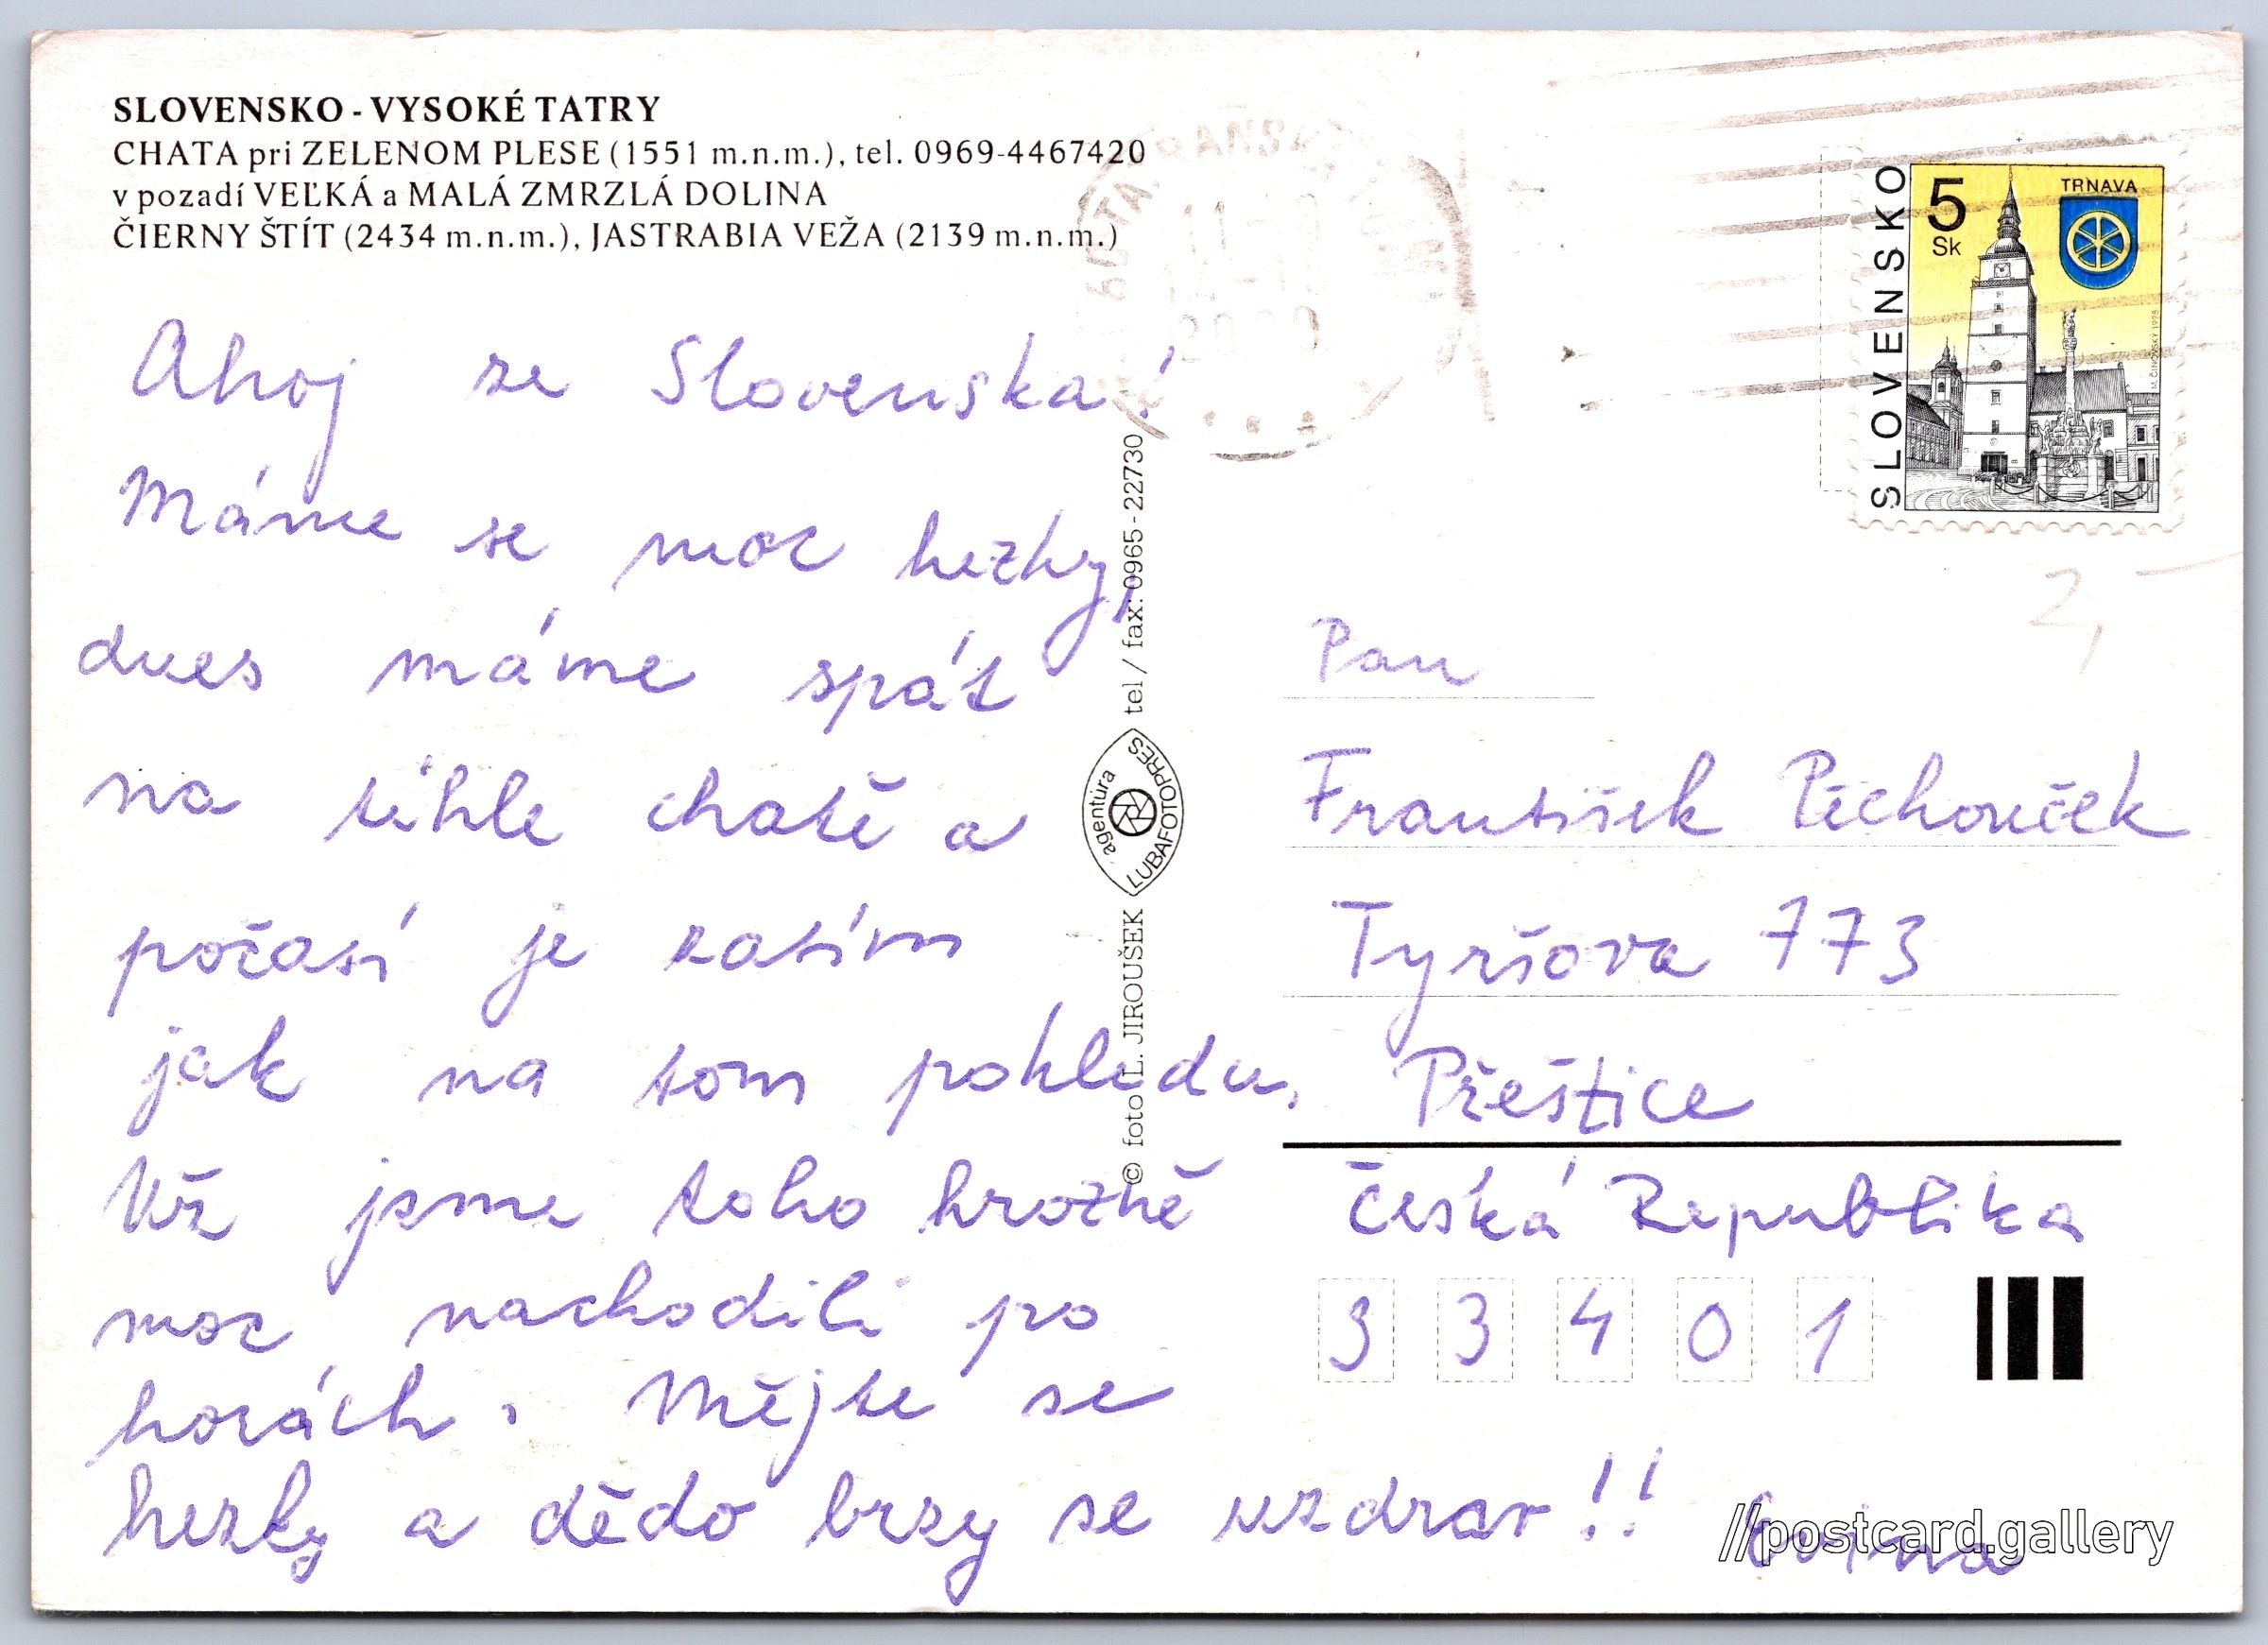 SLOVENSKO - VYSOKÉ TATRY
CHATA pri ZELENOM PLESE (1551 m.n.m.), tel. 0969-4467420
v pozadí VEĽKÁ a MALÁ ZMRZLÁ DOLINA
ČIERNY ŠTÍT (2434 m.n.m.), JASTRABIA VEŽA (2139 m.n.m.)
Ahoj ze Slovenska!
Máme se moc hezky,
dnes máme spát
na téhle chatě a
počasí je zatím
jak na tom pohledu.
Už jsme toho hrozně
moc nachodili po
horách. Mějte se
hezky a dědo brzy se uzdrav!!
© foto L. JIROUŠEK
agentúra
LUBAFOTOPRES
tel / fax: 0965-22730
SLOVENSKO
5
Sk
TRNAVA
M. ČINOVSKÝ 1998
2,-
Pan
František Pěchouček
Tyršova 773
Přeštice
Česká Republika
33401
//postcard.gallery